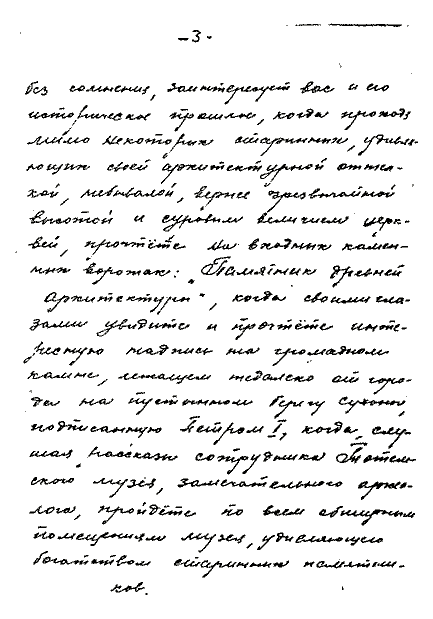 – 3 -
без сомнения, заинтересует вас и его
историческое прошлое, когда проходя
мимо некоторых старинных, удивля-
ющих своей архитектурной отдел-
кой, небывалой, вернее чрезвычайной
высотой и суровым величием церк-
вей, прочтёте на входных камен-
ных воротах: „Памятник древней
архитектуры“, когда своими гла-
зами увидите и прочтёте инте-
ресную надпись на громадном
камне, лежащем недалеко от горо-
да на пустынном берегу Сухоны,
подписанную Петром I, когда, слу-
шая рассказы сотрудника Тотем-
ского музея, замечательного архео-
лога, пройдёте по всем обширным
помещениям музея, удивляющего
богатством старинных памятни-
ков.